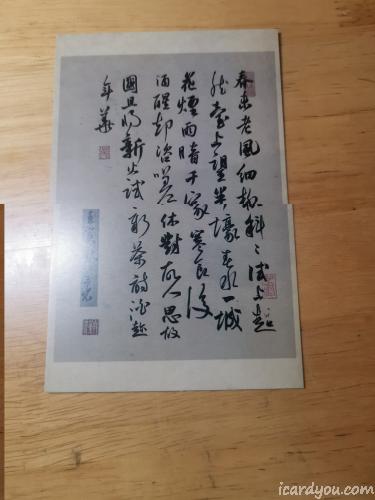 春未老風細柳斜〻試上超
然臺上望半壕春水一城
花煙雨暗千家寒食後
酒醒却咨嗟休對故人思故
國且將新火試新茶詩酒趁
年華
icardyou.com